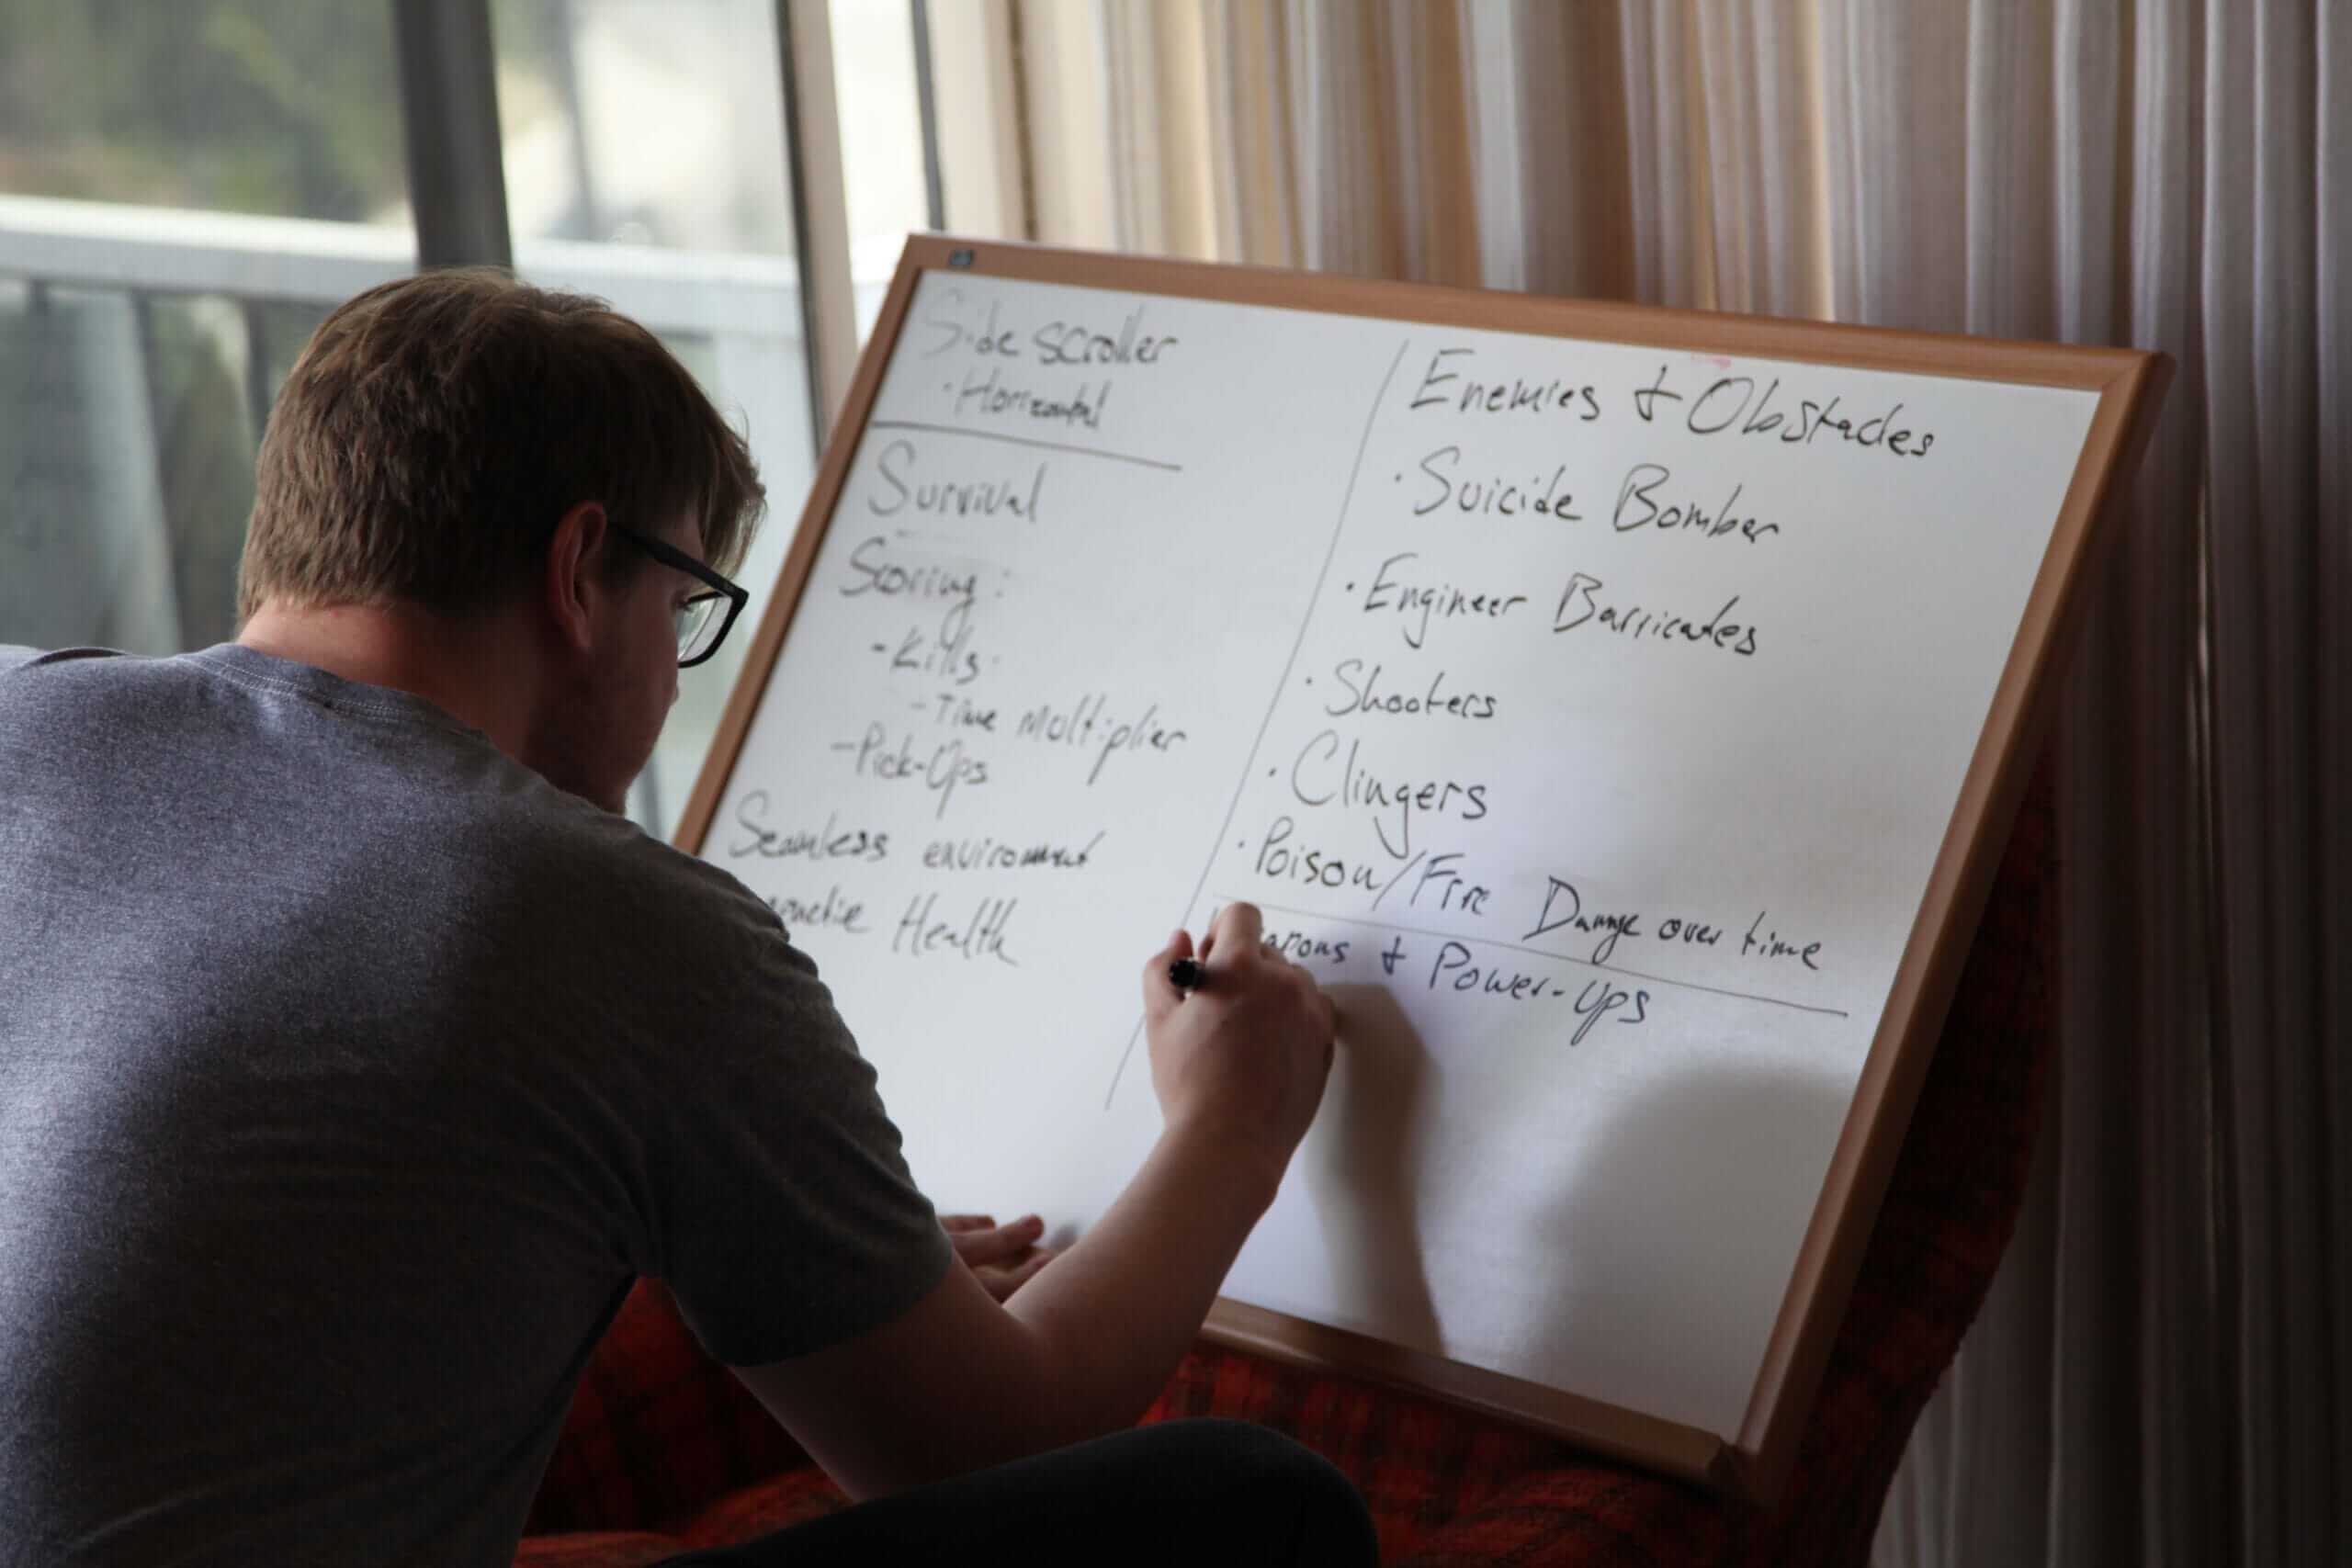 Side scroller
· Horizontal
Survival
Scoring:
- Kills
- Time multiplier
- Pick-Ups
Seamless enviroment
Health
Enemies & Obstacles
· Suicide Bomber
· Engineer Barricates
· Shooters
· Clingers
· Poison/Fire Damage over time
& Power-Ups